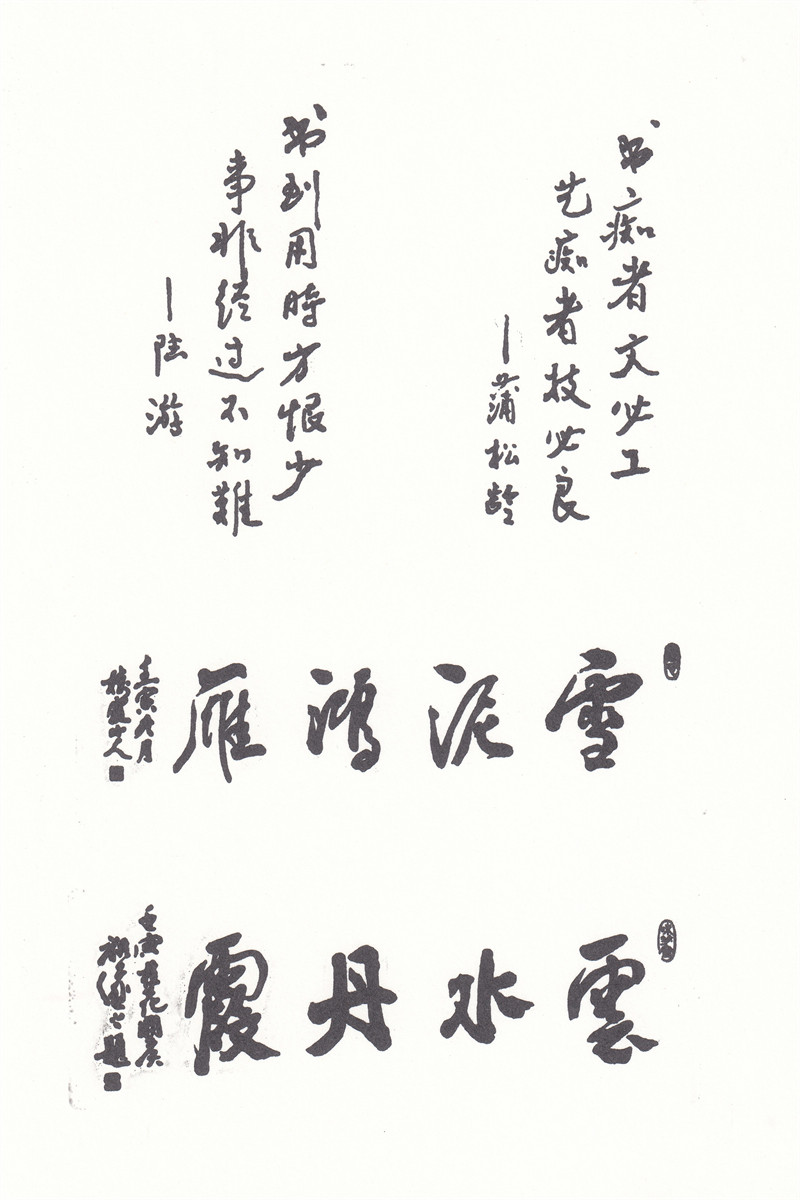 书痴者文必工
艺痴者技必良
—蒲松龄
书到用時方恨少
事非经过不知難
—陆游
雪泥鸿雁
壬寅九月
雲水丹霞
壬寅桂花開矣